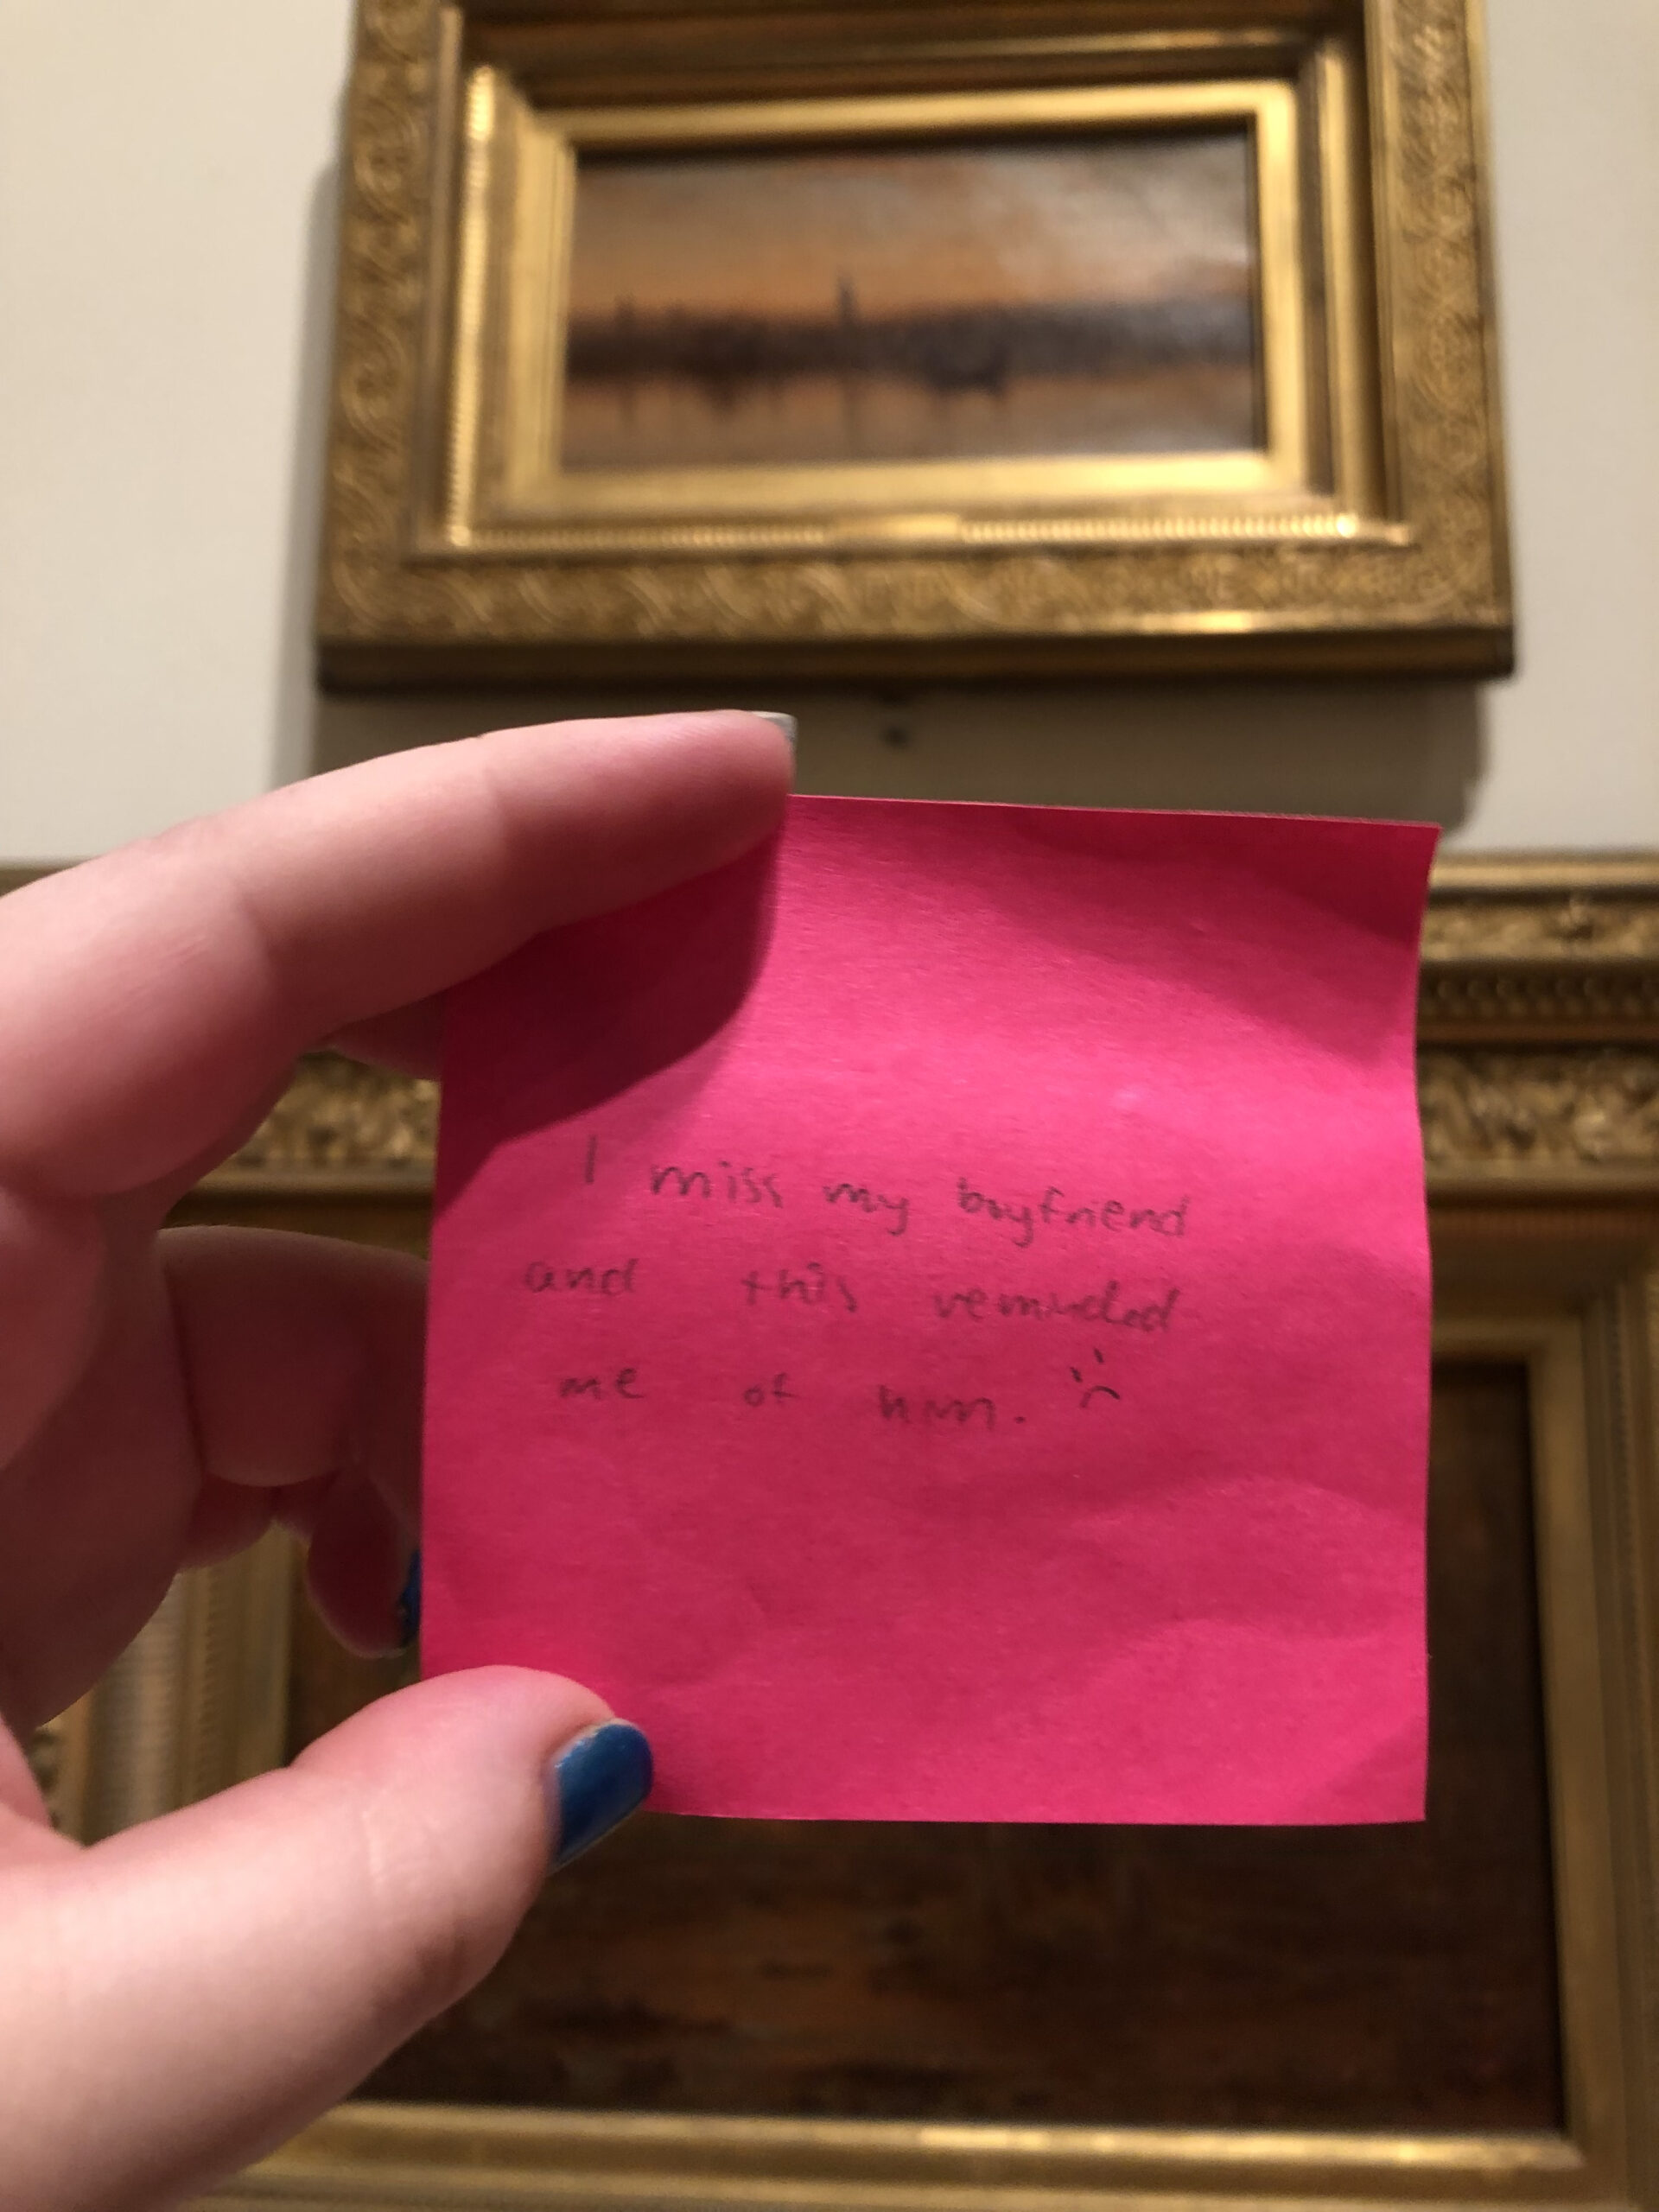 I miss my boyfriend
and this reminded
me of him. :(